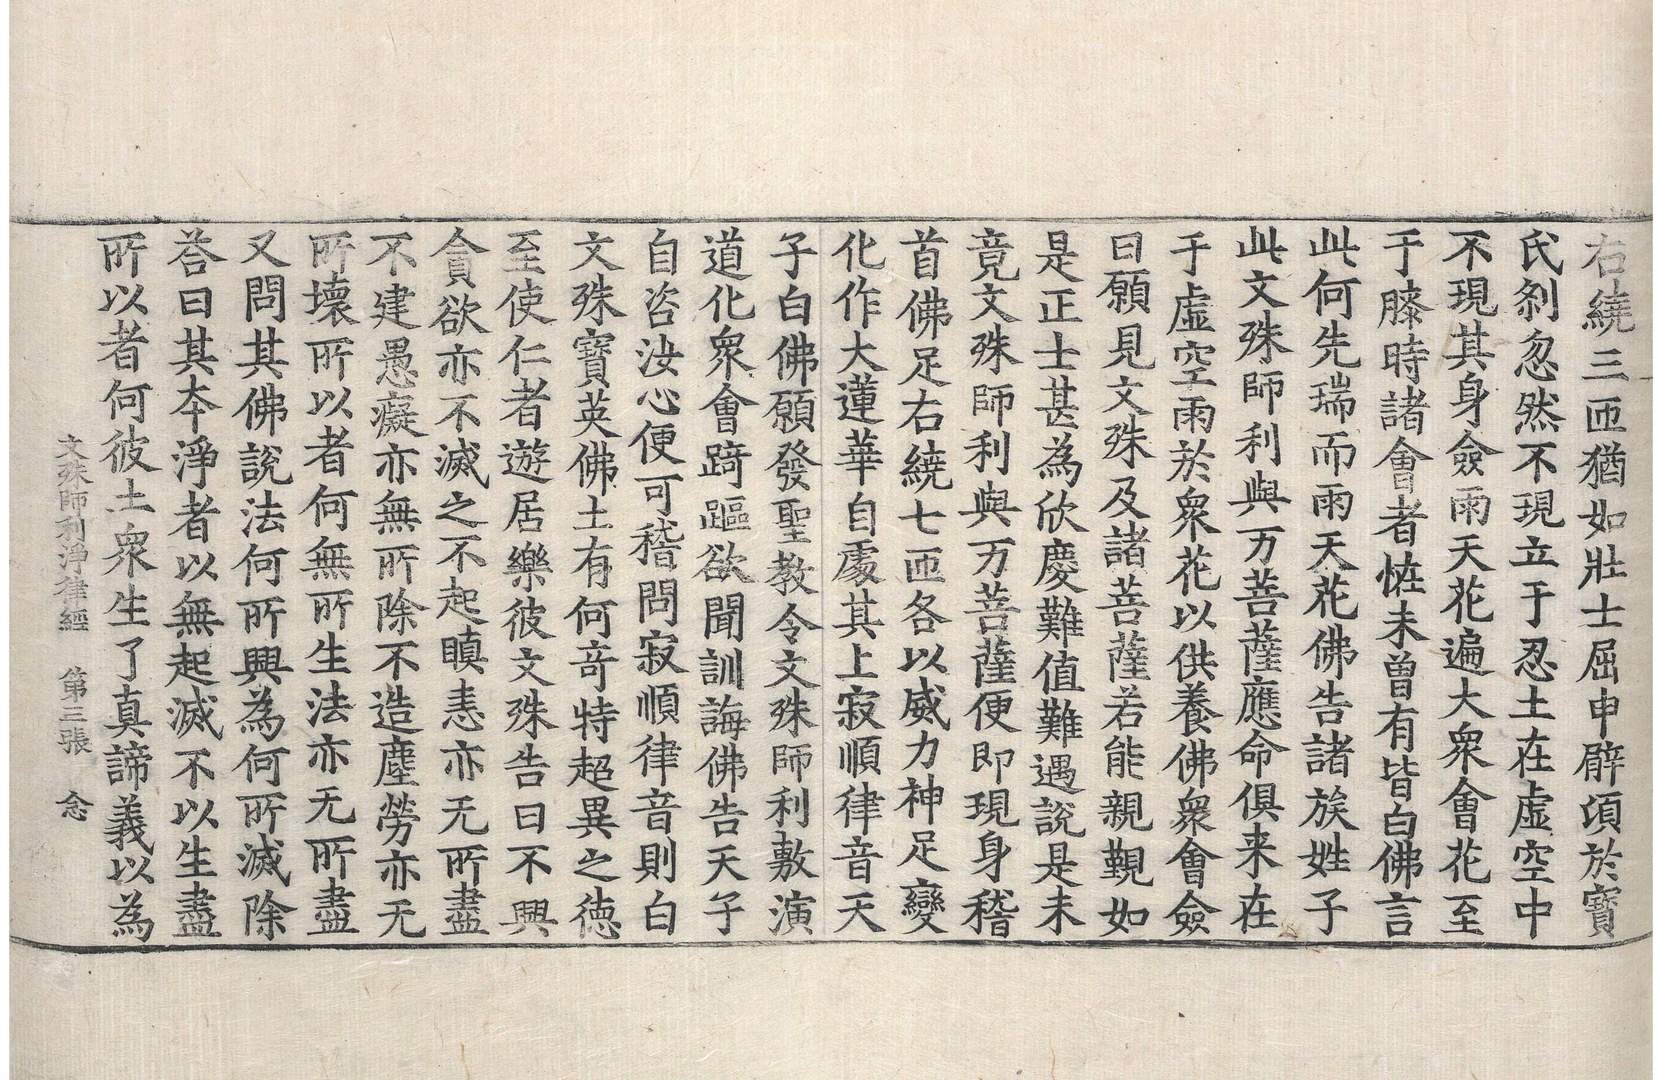 右繞三匝猶如壯士屈申臂頃於寶
氏剎忽然不現立于忍土在虛空中
不現其身僉雨天花遍大衆會花至
于膝時諸會者恠未曾有皆白佛言
此何先瑞而雨天花佛告諸族姓子
此文殊師利與万菩薩應命俱来在
于虛空雨於衆花以供養佛衆會僉
曰願見文殊及諸菩薩若能親覲如
是正士甚為欣慶難值難遇說是未
竟文殊師利與万菩薩便即現身稽
首佛足右繞七匝各以威力神足變
化作大蓮華自處其上寂順律音天
子白佛願發聖教令文殊師利敷演
道化衆會踦䠓欲聞訓誨佛告天子
自咨汝心便可稽問寂順律音則白
文殊寶英佛土有何奇特超異之德
至使仁者遊居樂彼文殊告曰不興
貪欲亦不滅之不起瞋恚亦无所盡
不建愚癡亦無所除不造塵勞亦无
所壞所以者何無所生法亦无所盡
又問其佛說法何所興為何所滅除
荅曰其夲淨者以無起滅不以生盡
所以者何彼土衆生了真諦義以為
文殊師利淨律經　第三張　念